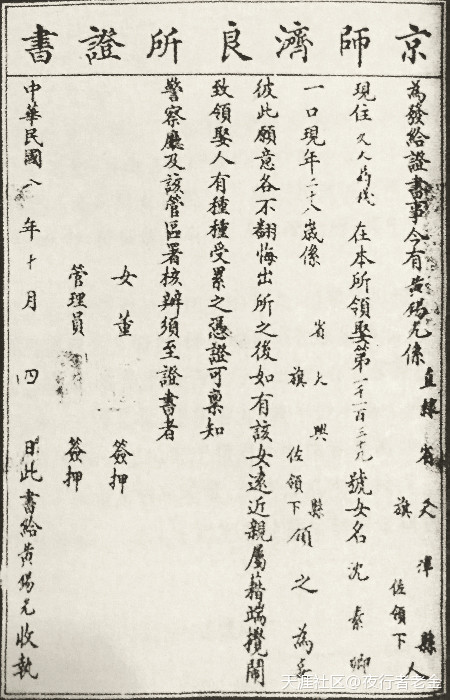 京師濟良所證書
為發給證書事今有黃錫元係直隸省天津縣人
旗佐領下
現住 在本所領娶第一千一百三十九號女名沈素卿
一口現年二十八歲係 省大興縣
旗佐領下 領之為妻
彼此願意各不翻悔出所之後如有該女遠近親屬藉端攪鬧
致領娶人有種種受累之憑證可稟知
警察廳及該管區署核辦須至證書者
女董 簽押
管理員 簽押
中華民國八年十月四日此書給黃錫元收執
天涯社区@夜行者老金